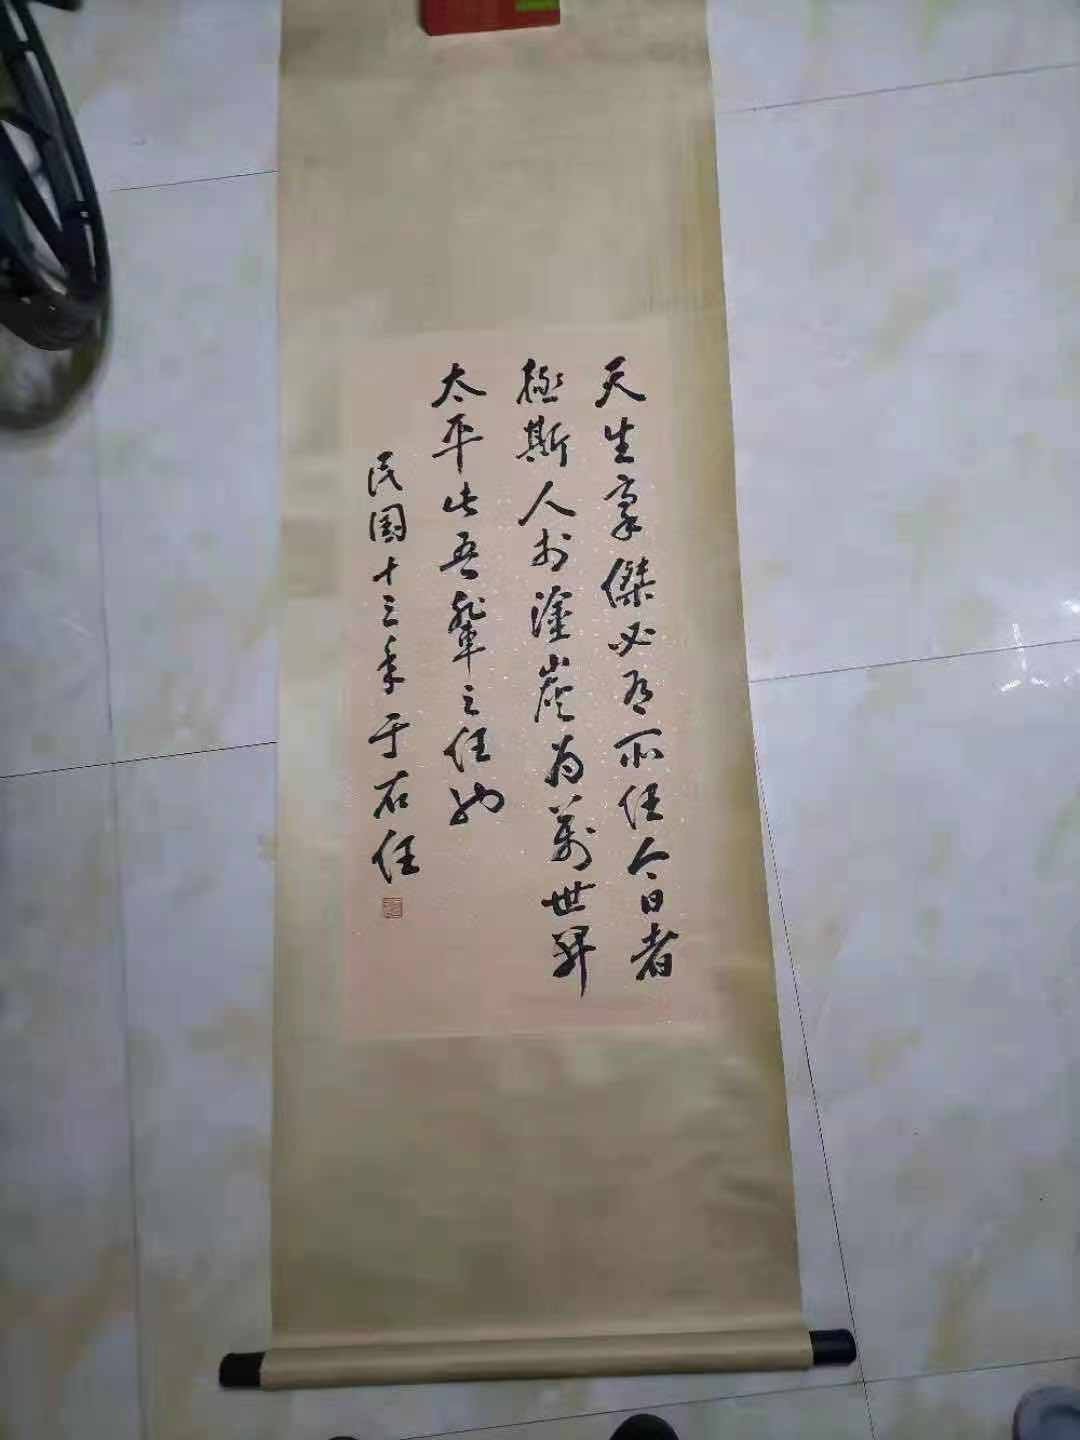 天生豪傑必有所任今日者
極斯人於塗炭為萬世開
太平此吾輩之任也
民国十三年于右任